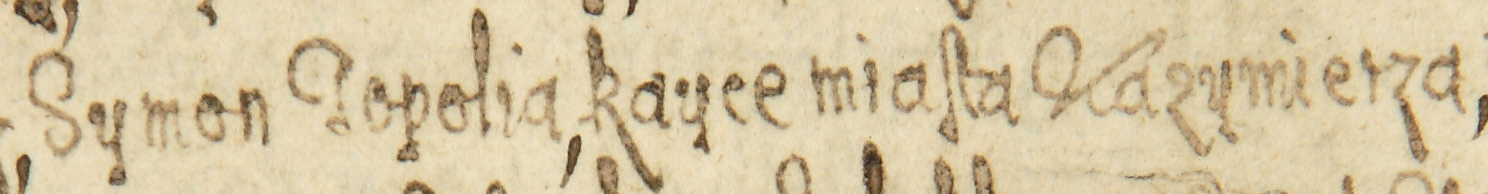 Symon Topolia, kayce miasta Kazymierza,